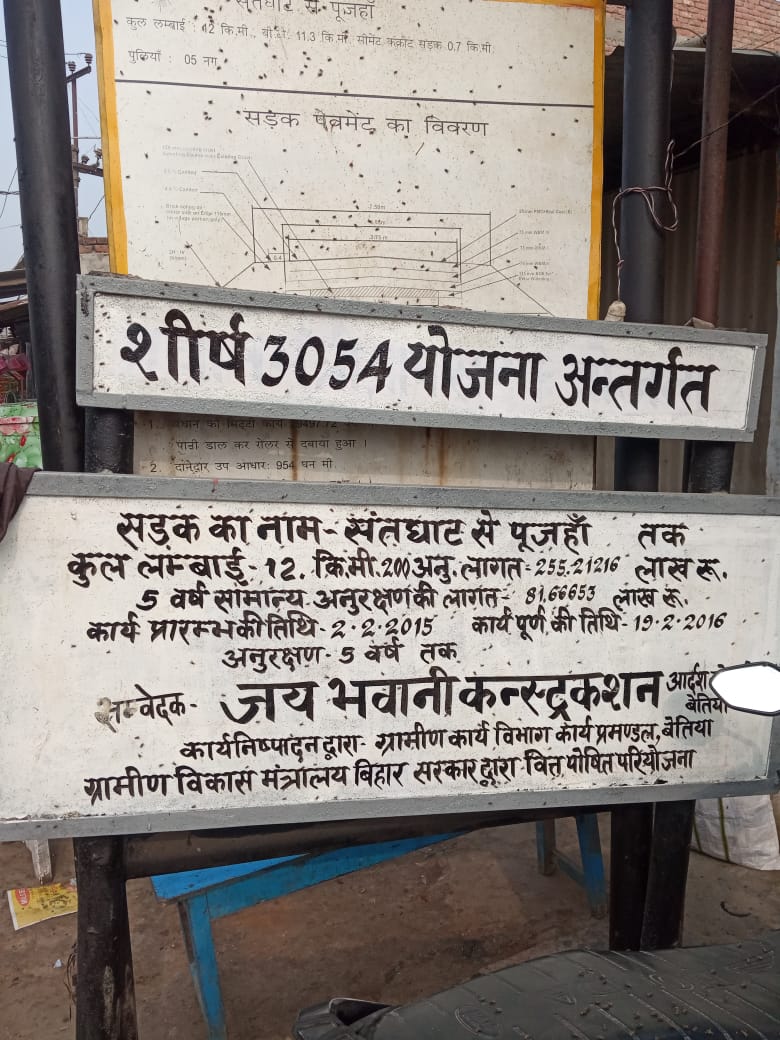 संतघाट से पूजहाँ
कुल लम्बाई : 12 कि.मी., बी.टी. 11.3 कि.मी. सीमेंट कंक्रीट सड़क 0.7 कि.मी.
पुलियाँ : 05 नग
सड़क पेवमेंट का विवरण
7.50m
3.75 m
शीर्ष 3054 योजना अन्तर्गत
पानी डाल कर रोलर से दबाया हुआ ।
2. दानेदार उप आधार: 954 घन मी.
सड़क का नाम- संतघाट से पूजहाँ तक
कुल लम्बाई- 12. कि.मी. 200 अनु. लागत- 255.21216 लाख रू.
5 वर्ष सामान्य अनुरक्षण की लागत- 81.66653 लाख रू.
कार्य प्रारम्भ की तिथि- 2-2-2015 कार्य पूर्ण की तिथि- 19-2-2016
अनुरक्षण- 5 वर्ष तक
सम्वेदक- जय भवानी कन्स्ट्रकशन आर्दश
बेतिया
कार्यनिष्पादन द्वारा- ग्रामीण कार्य विभाग कार्य प्रमण्डल, बेतिया
ग्रामीण विकास मंत्रालय बिहार सरकार द्वारा- वित्त पोषित परियोजना